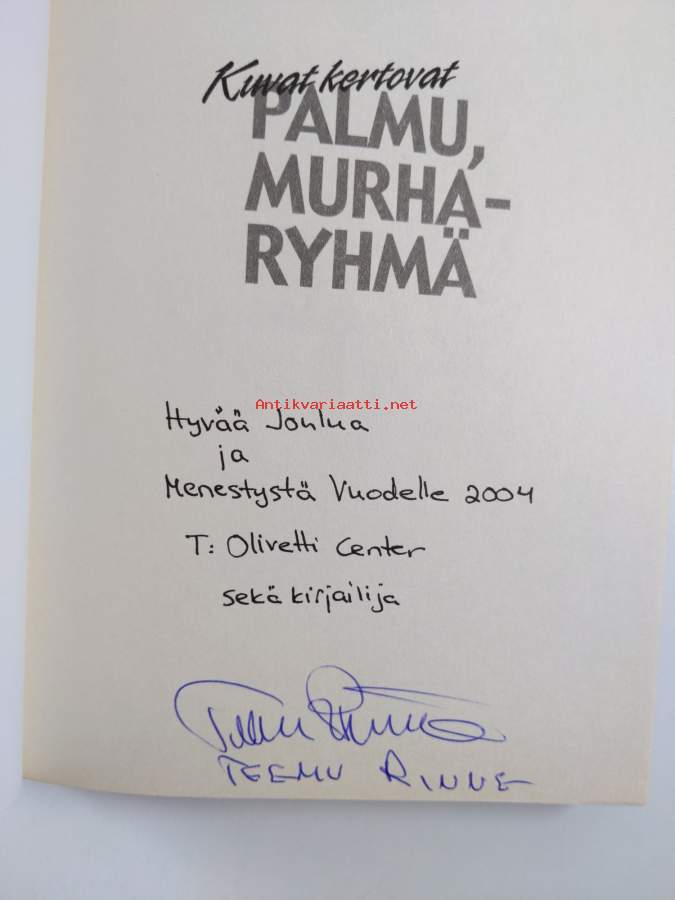 Kuvat kertovat
PALMU,
MURHA-
RYHMÄ
Antikvariaatti.net
Hyvää Joulua
ja
Menestystä Vuodelle 2004
T: Olivetti Center
sekä kirjailija
Teemu Rinne
TEEMU RINNE